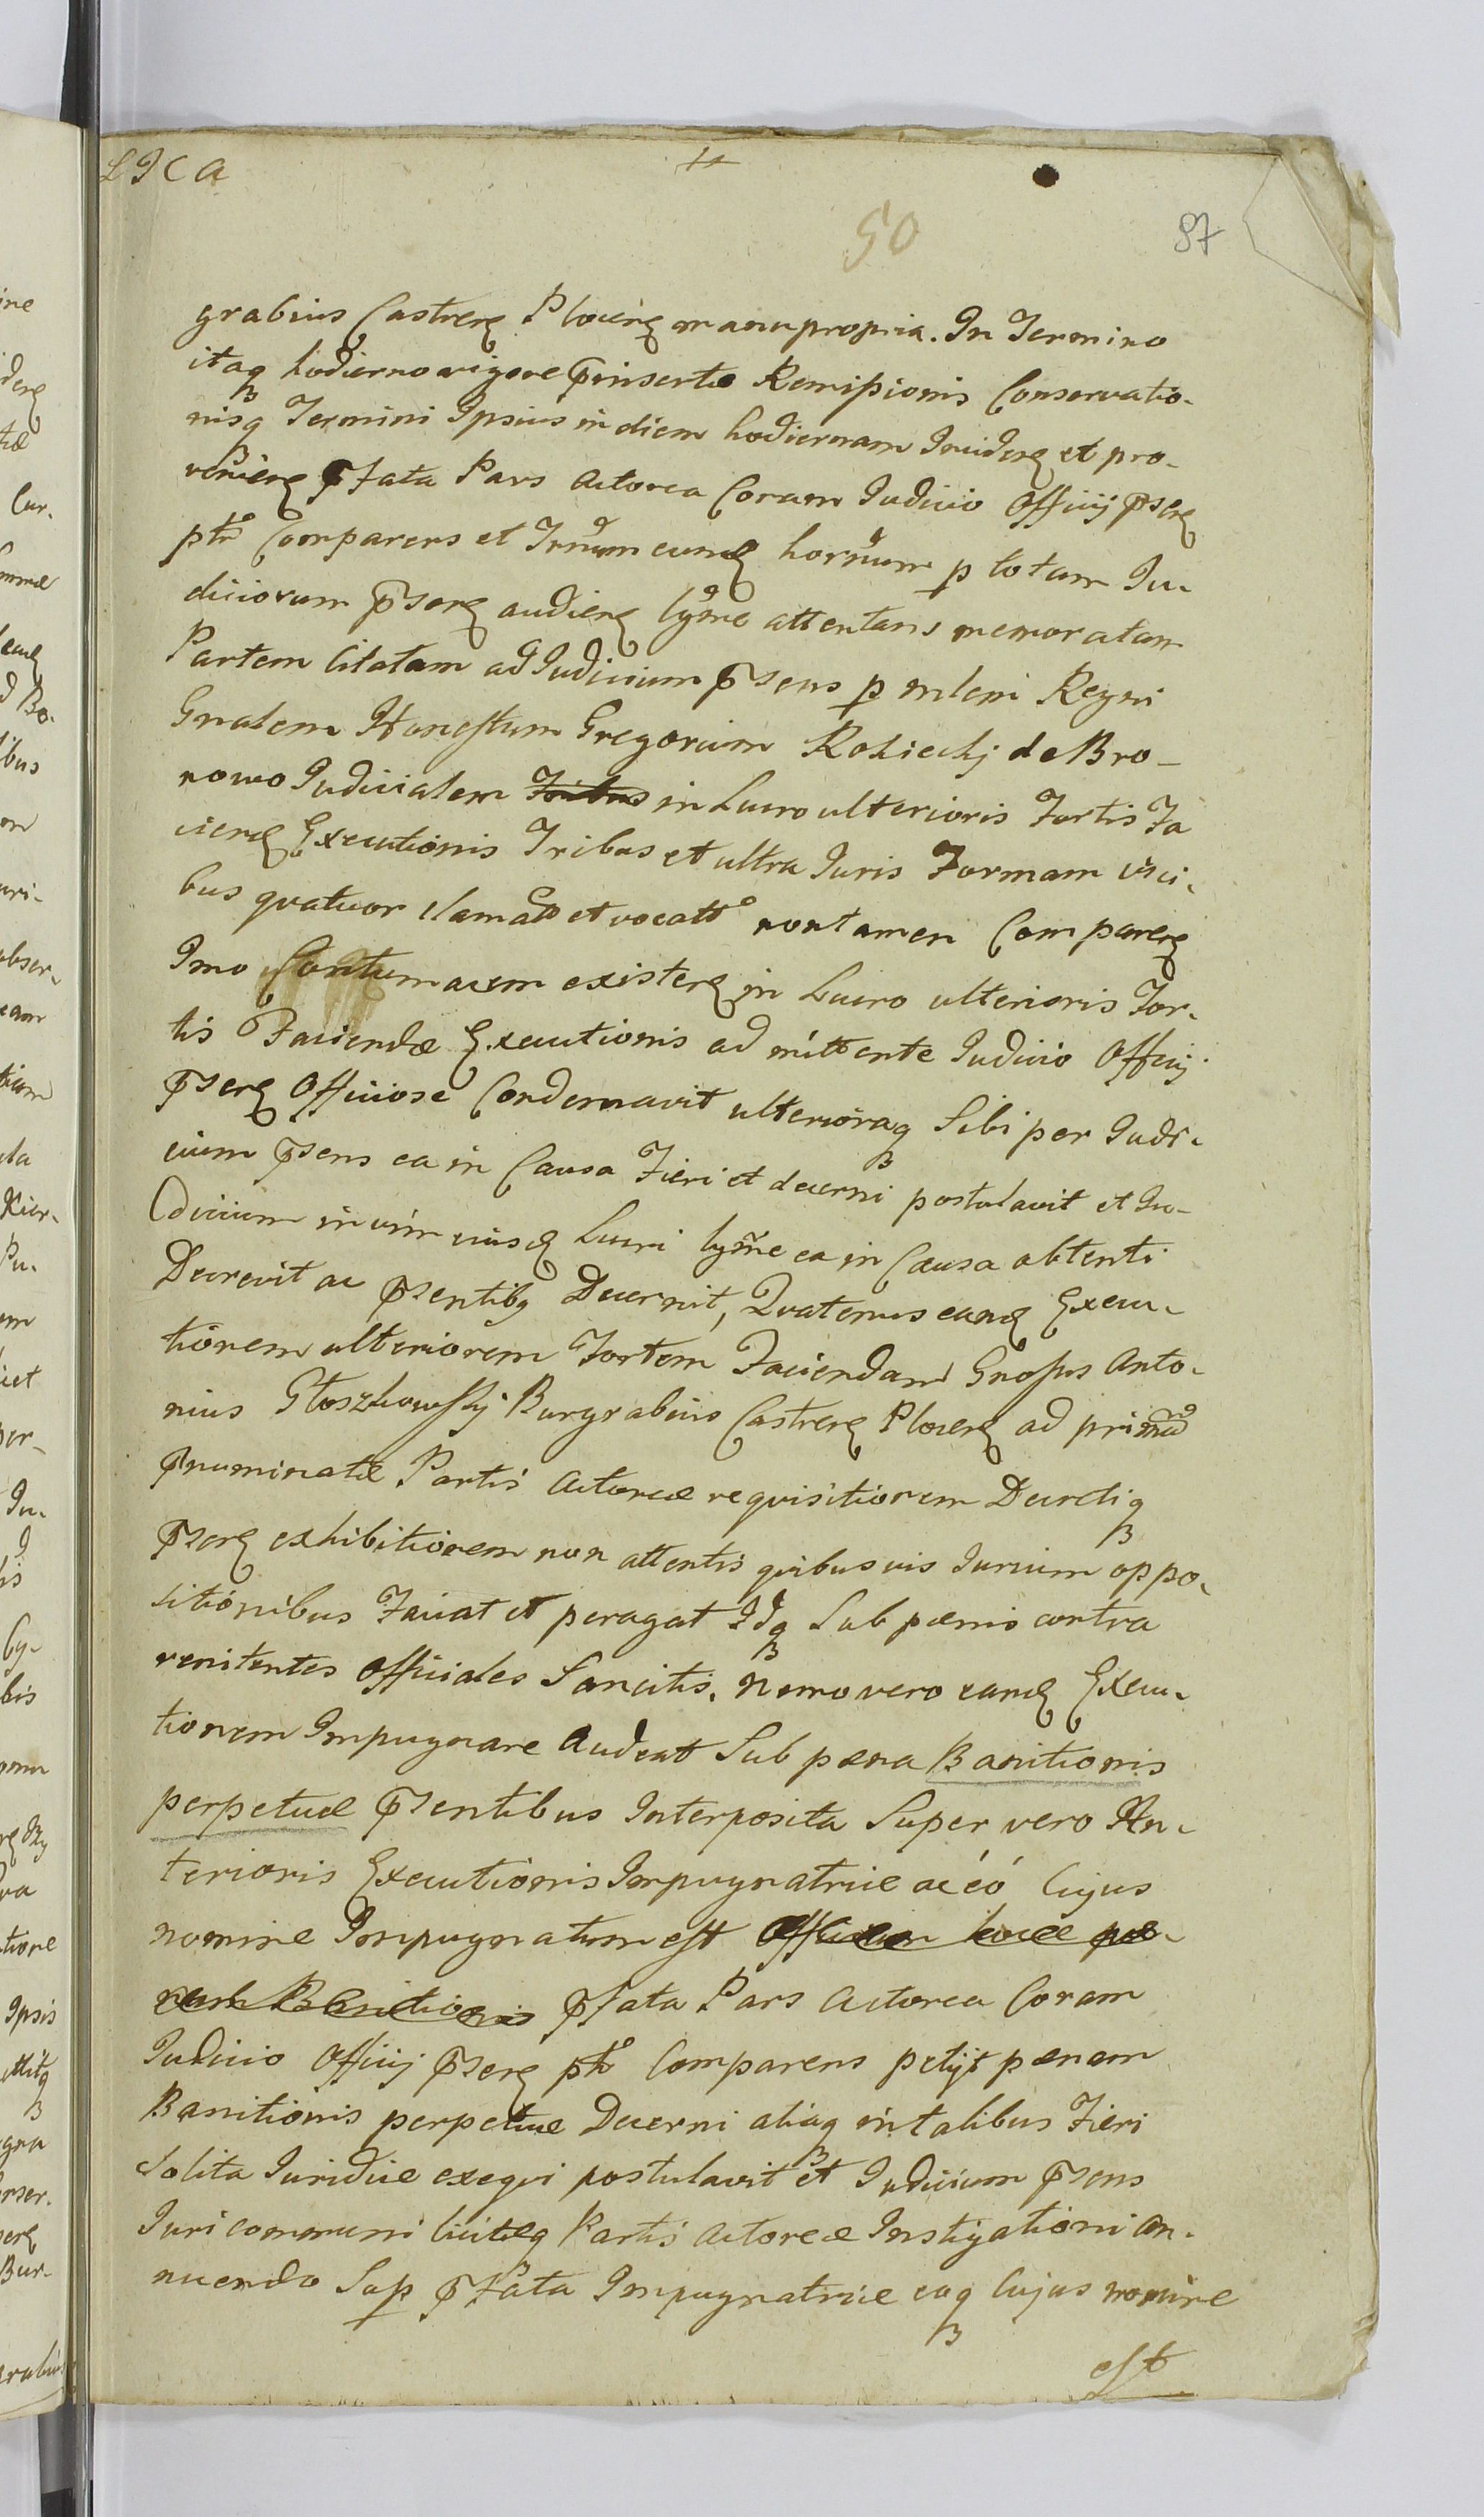 LICA
50
87
grabius Castren Plocen manu propria. In Termino
itaq hodierno vigore pinsertæ Remissionis Conservatio-
nisq Termini Ipsius in diem hodiernam Inciden et pro-
venien pfata Pars Actorea Coram Iudicio Officij psen
pttr Comparens et Trnum eund hornum p totam Iu-
diciorum psen audien lgme attentans memoratam
Partem Citatam ad Iudicium psens p mlem Regni
Gnalem Honestum Gregorium Rokicckj de Bro-
nowo Iudicialem in Lucro ulterioris Fortis Fa
cien Executionis Tribus et ultra Iuris Formam vici-
bus quatuor clamatt et vocatt non tamen Comparen
Imo Contumacem existen in Lucro ulterioris For-
tis Faciendæ Executionis admittente Iudicio Officij
psen Officiose Condemnavit ulterioraq Sibi per Iudi-
cium psens ea in Causa Fieri et decerni postulavit et Iu-
dicium in vim eiusd Lucri lgme ea in Causa obtenti
Decrevit ac psentibq Decernit, Quatenus eand Execu-
tionem ulteriorem Fortem Faciendam Gnosus Anto-
nius Głoszkowskj Burgrabius Castren Plocen ad primam
pnuminatæ Partis Actoreæ requisitionem Decretiq
psen exhibitionem non attentis quibusvis Iurium oppo-
sitionibus Faciat et peragat Idq Sub pœnis contra
renitentes Officiales Sancitis. Nemo vero eand Execu-
tionem Impugnare Audeat Sub pœna Banitionis
perpetuæ psentibus Interposita Super vero An-
terioris Executionis Impugnatrice ac eo Cujus
nomine Impugnatum est
pfata Pars Actorea Coram
Iudicio Officij psen pttr Comparens petijt pœnam
Banitionis perpetuæ Decerni aliaq in talibus Fieri
Solita Iuridice exequi postulavit et Iudicium psens
Iuri communi licitæq Partis Actoreæ Instigationi an-
nuendo Sup pfata Impugnatrice eoq Cujus nomine
est